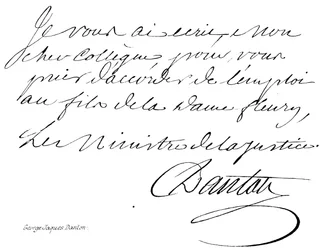 Je vous ai ecrit, mon
cher collègue, pour vous
prier d'accorder de l'emploi
au fils de la Dame fleury,
Le Ministre de la justice.
Danton
George Jaques Danton.